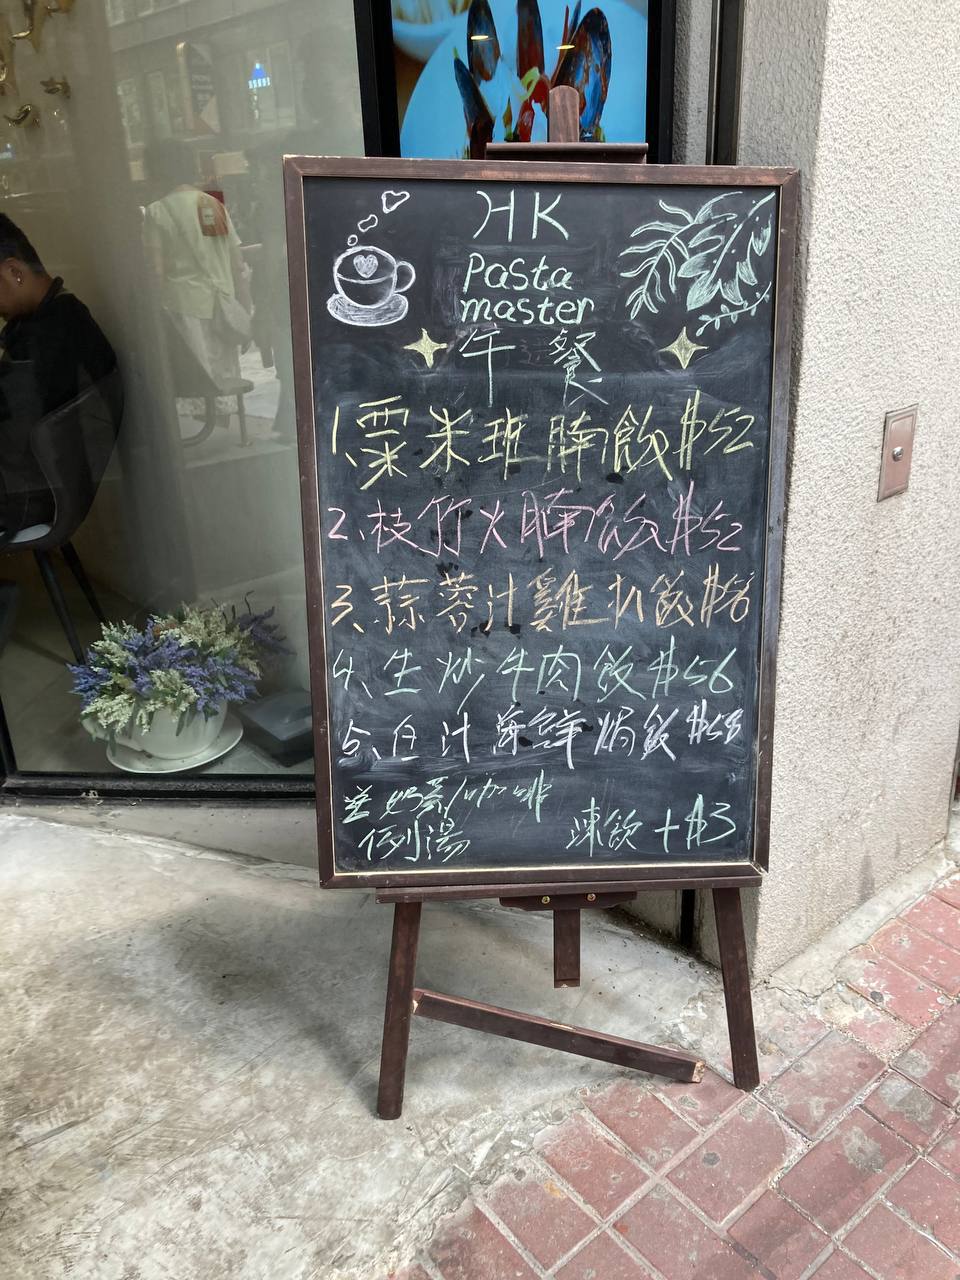 HK
Pasta
master
午餐
1、粟米班腩飯$52
2、枝竹火腩飯$52
3、蒜蓉汁雞扒飯
4、生炒牛肉飯$56
5、白汁海鮮焗飯$58
送奶茶/咖啡
例湯
凍飲+$3